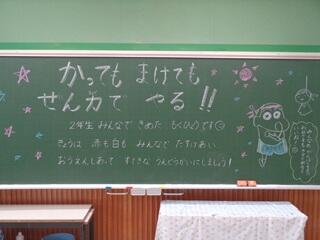 かっても まけても
せん力で やる!!
2年生 みんなで きめた もくひょうです
きょうは 赤も白も みんなで たすけあい
おうえんしあって すてきな うんどうかいにしましょう!